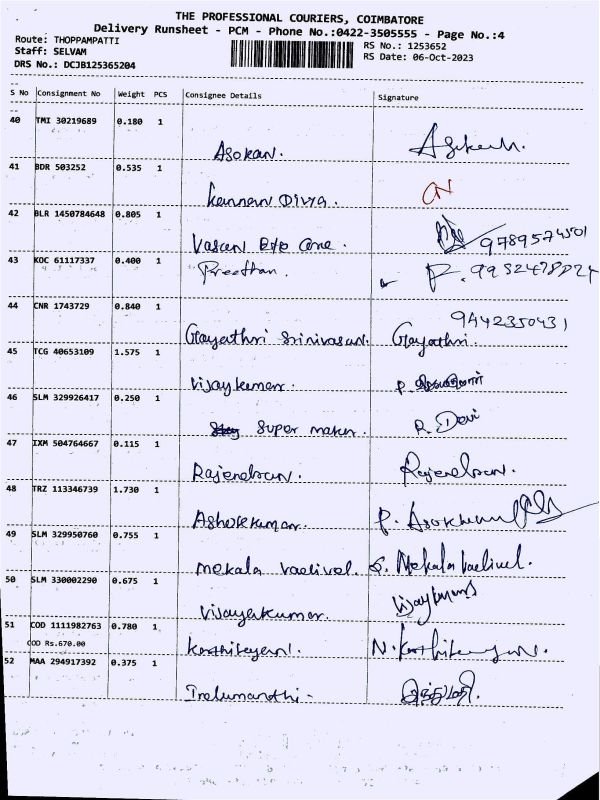 THE PROFESSIONAL COURIERS, COIMBATORE
Delivery Runsheet - PCM - Phone No.:0422-3505555 - Page No.:4
Route: THOPPAMPATTI
Staff: SELVAM
DRS No.: DCJB125365204
RS No.: 1253652
RS Date: 06-Oct-2023
S No Consignment No Weight PCS Consignee Details Signature
40 TMI 30219689 0.180 1
Asokan.
41 BDR 503252 0.535 1
Kannan Divya.
42 BLR 1450784648 0.805 1
Vasan Eye Care. 9789574501
43 KOC 61117337 0.400 1
Preethan. P.
44 CNR 1743729 0.840 1
9442350431
Gayathri Srinivasan. Gayathri.
45 TCG 40653109 1.575 1
Vijaykumar. P.
46 SLM 329926417 0.250 1
Super R. Devi
47 IXM 504764667 0.115 1
Rajendran. Rajendran.
48 TRZ 113346739 1.730 1
Ashokkumar. P.
49 SLM 329950760 0.755 1
Mekala Vadivel. S. Mekala Vadivel.
50 SLM 330002290 0.675 1
Vijayakumar. Vijaykumar
51 COD 1111982763 0.780 1
COD Rs.670.00
Karthikeyan. N. Karthikeyan.
52 MAA 294917392 0.375 1